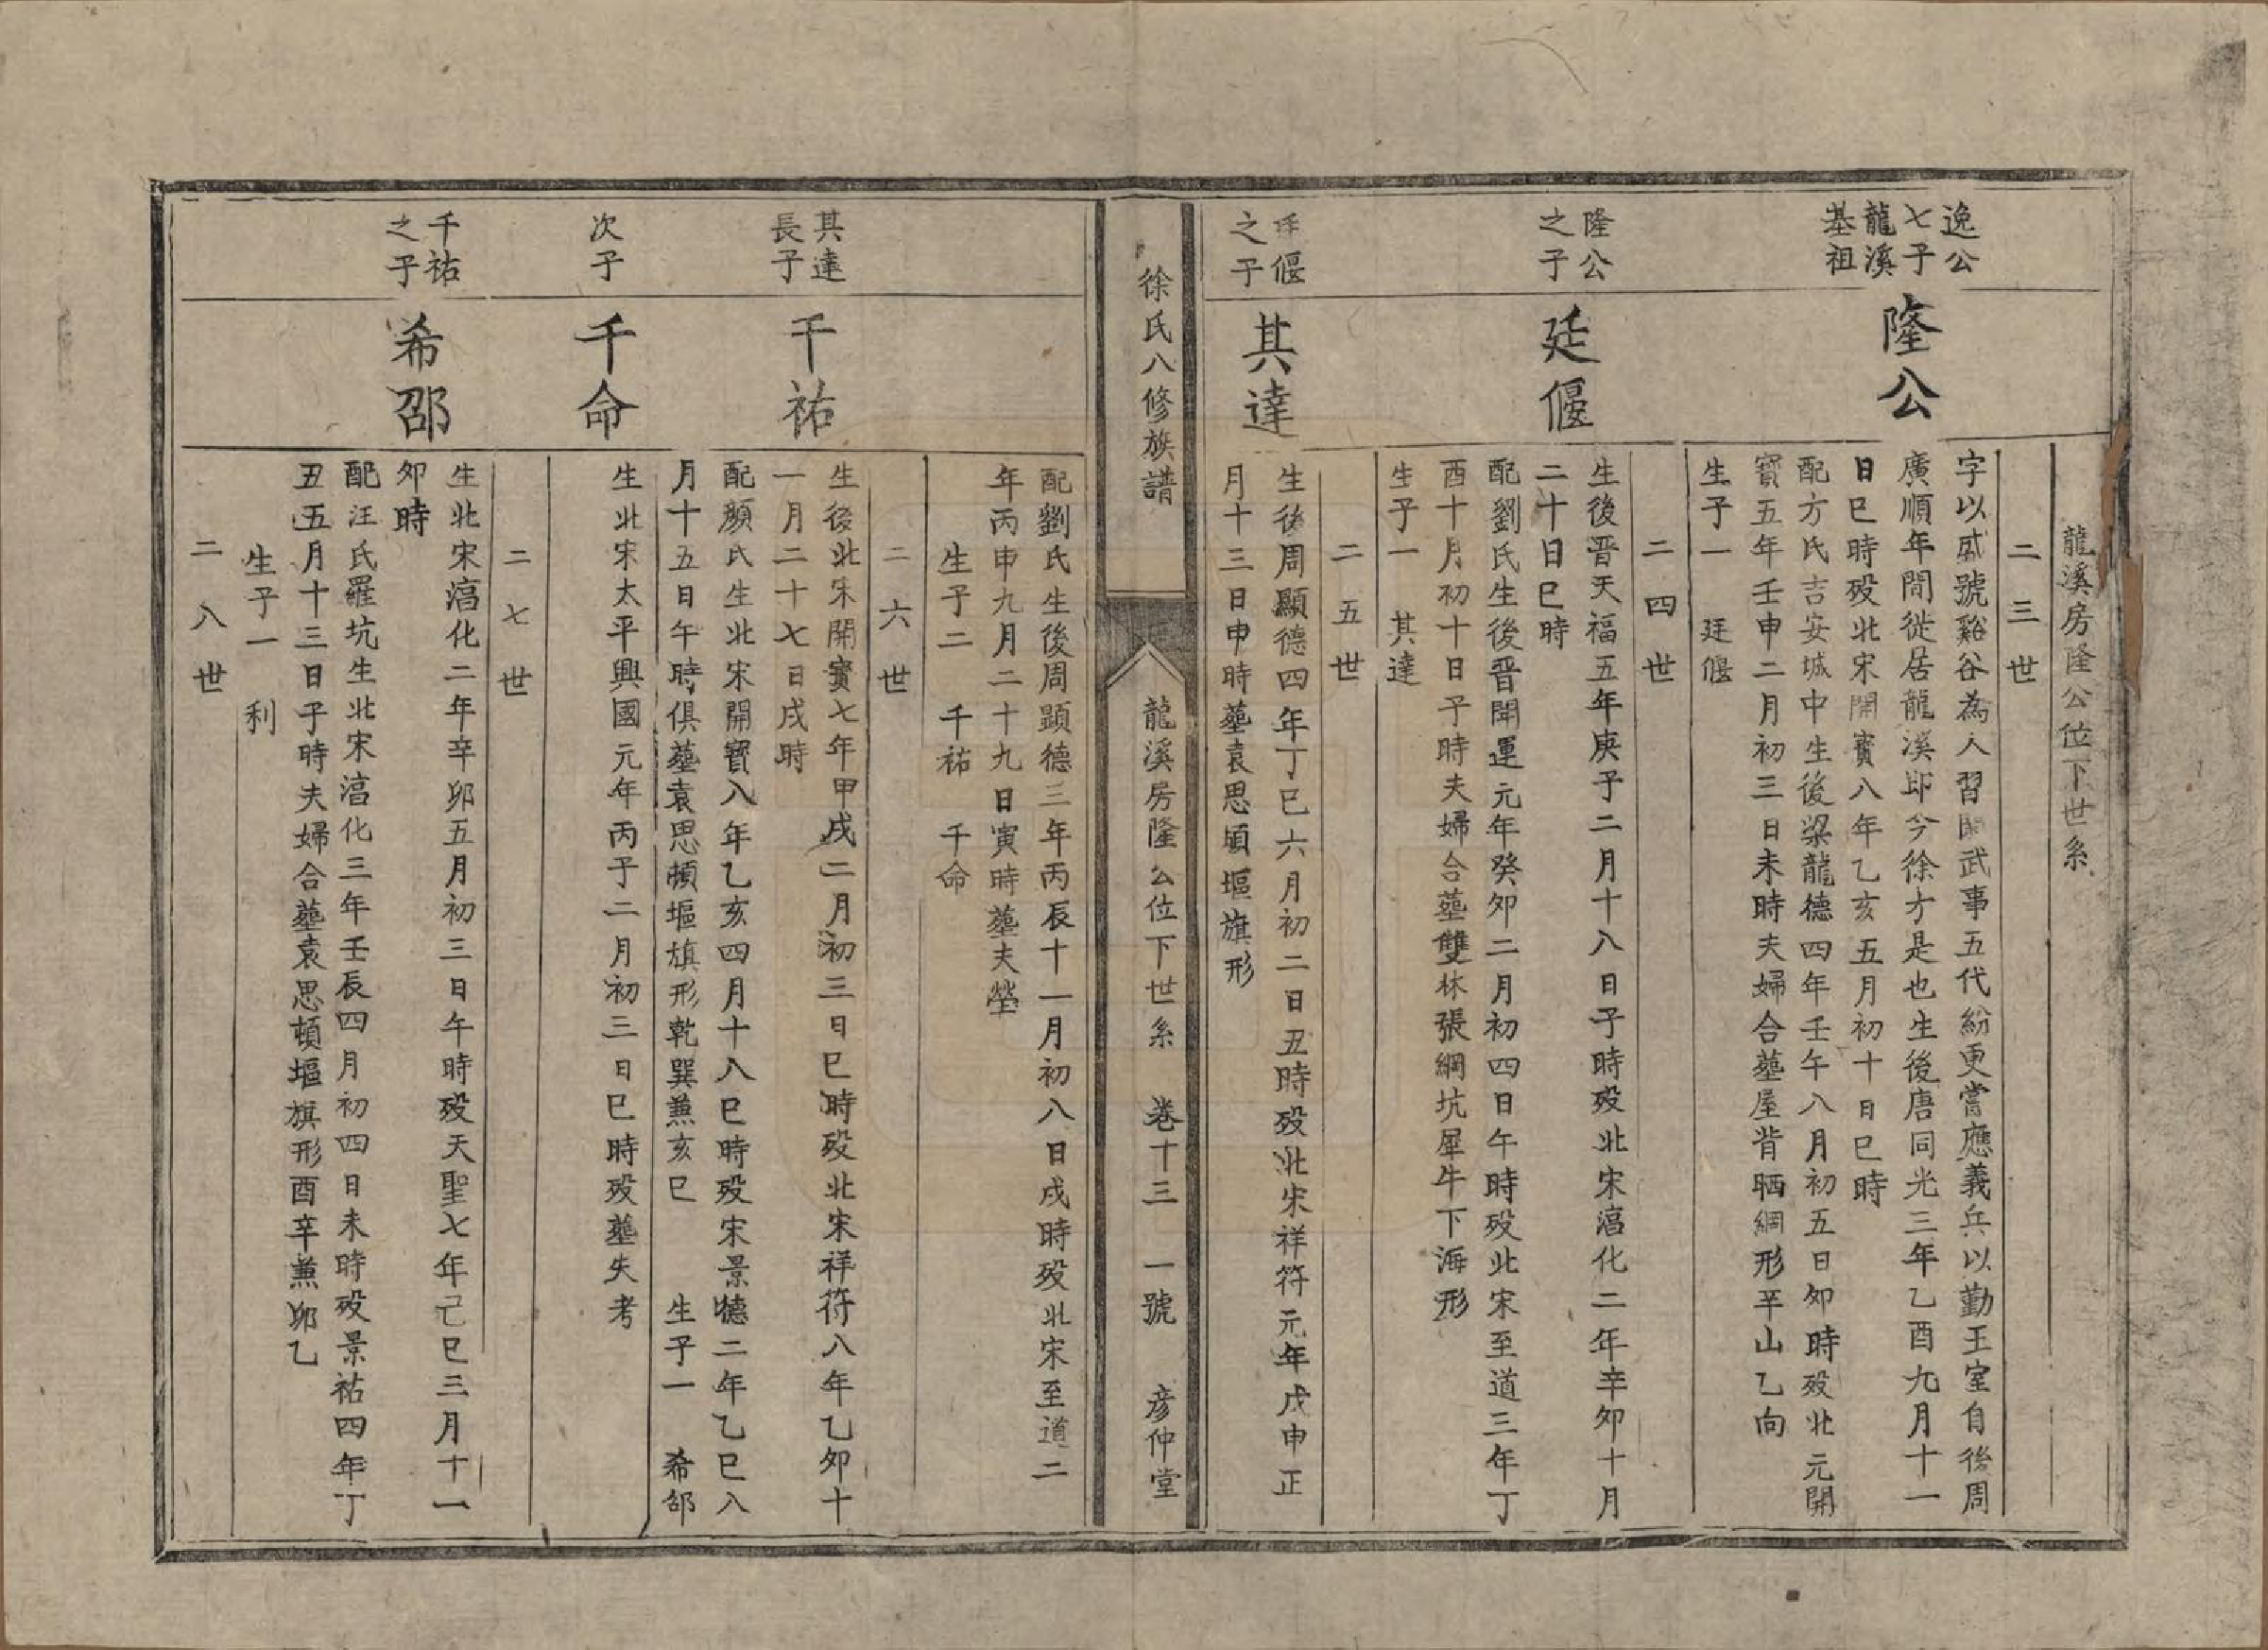 龍溪房隆公位下世系
二三世
逸公
七子
龍溪
基祖
隆公
字以盛號谿谷為人習閑武事五代紛更嘗應義兵以勤王室自後周
廣順年間徙居龍溪即今徐才是也生後唐同光三年乙酉九月十一
日巳時殁北宋開寳八年乙亥五月初十日巳時
配方氏吉安城中生後梁龍德四年壬午八月初五日卯時殁北元開
寳五年壬申二月初三日未時夫婦合塟屋背晒綱形辛山乙向
生子一 廷偃
二四世
隆公
之子
廷偃
生後晋天福五年庚子二月十八日子時殁北宋滈化二年辛卯十月
二十日巳時
配劉氏生後晋開運元年癸卯二月初四日午時殁北宋至道三年丁
酉十月初十日子時夫婦合塟雙林張綱坑犀牛下海形
生子一 其達
二五世
廷偃
之子
其達
生後周顯德四年丁巳六月初二日丑時殁北宋祥符元年戊申正
月十三日申時塟袁思頓塸旗形
徐氏八修族譜
龍溪房隆公位下世系 卷十三 一號 彦仲堂
配劉氏生後周顕德三年丙辰十一月初八日戌時殁北宋至道二
年丙申九月二十九日寅時塟夫塋
生子二 千祐 千命
二六世
其達
長子
千祐
生後北宋開寳七年甲戌二月初三日巳時殁北宋祥符八年乙卯十
一月二十七日戌時
配顔氏生北宋開寳八年乙亥四月十八巳時殁宋景德二年乙巳八
月十五日午時俱塟袁思頓塸旗形乾巽蕪亥巳 生子一 希邵
次子
千命
生北宋太平興國元年丙子二月初三日巳時殁塟失考
二七世
千祐
之子
希邵
生北宋滈化二年辛卯五月初三日午時殁天聖七年己巳三月十一
卯時
配汪氏羅坑生北宋滈化三年壬辰四月初四日未時殁景祐四年丁
丑五月十三日子時夫婦合塟袁思頓塸旗形酉辛蕪卯乙
生子一 利
二八世